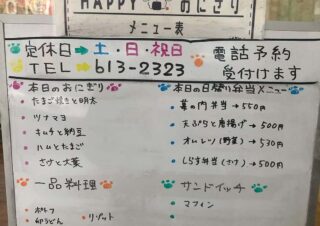 HAPPY おにぎり
メニュー表
定休日→土・日・祝日
TEL→613-2323
電話予約
受付けます
本日のおにぎり
たまご焼きと明太
ツナマヨ
キムチと納豆
ハムとたまご
さけと大葉
本日の日替り弁当メニュー
幕の内弁当→550円
天ぷらと唐揚げ→500円
オムレツ(野菜)→530円
しらす弁当(さけ)→500円
一品料理
ポトフ
卵うどん
リゾット
サンドイッチ
マフィン